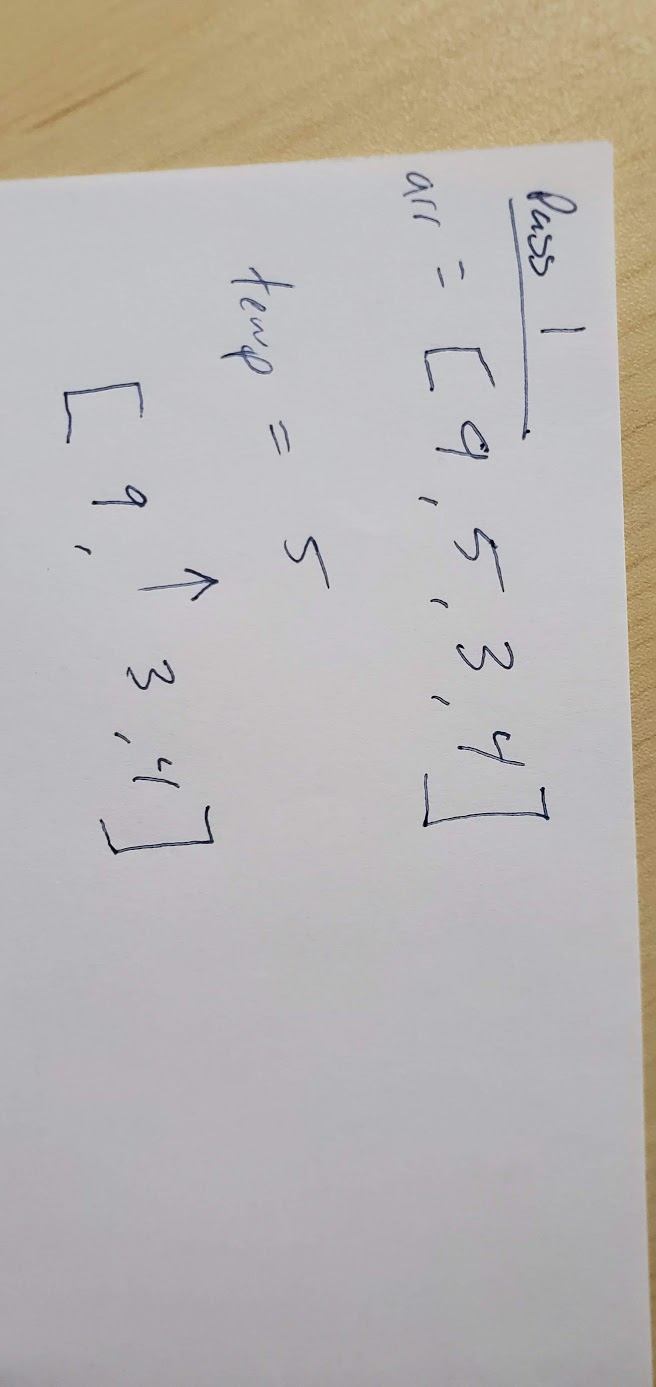 Pass 1
arr = [ 9, 5, 3, 4 ]
temp = 5
[ 9, ↑ 3, 4 ]